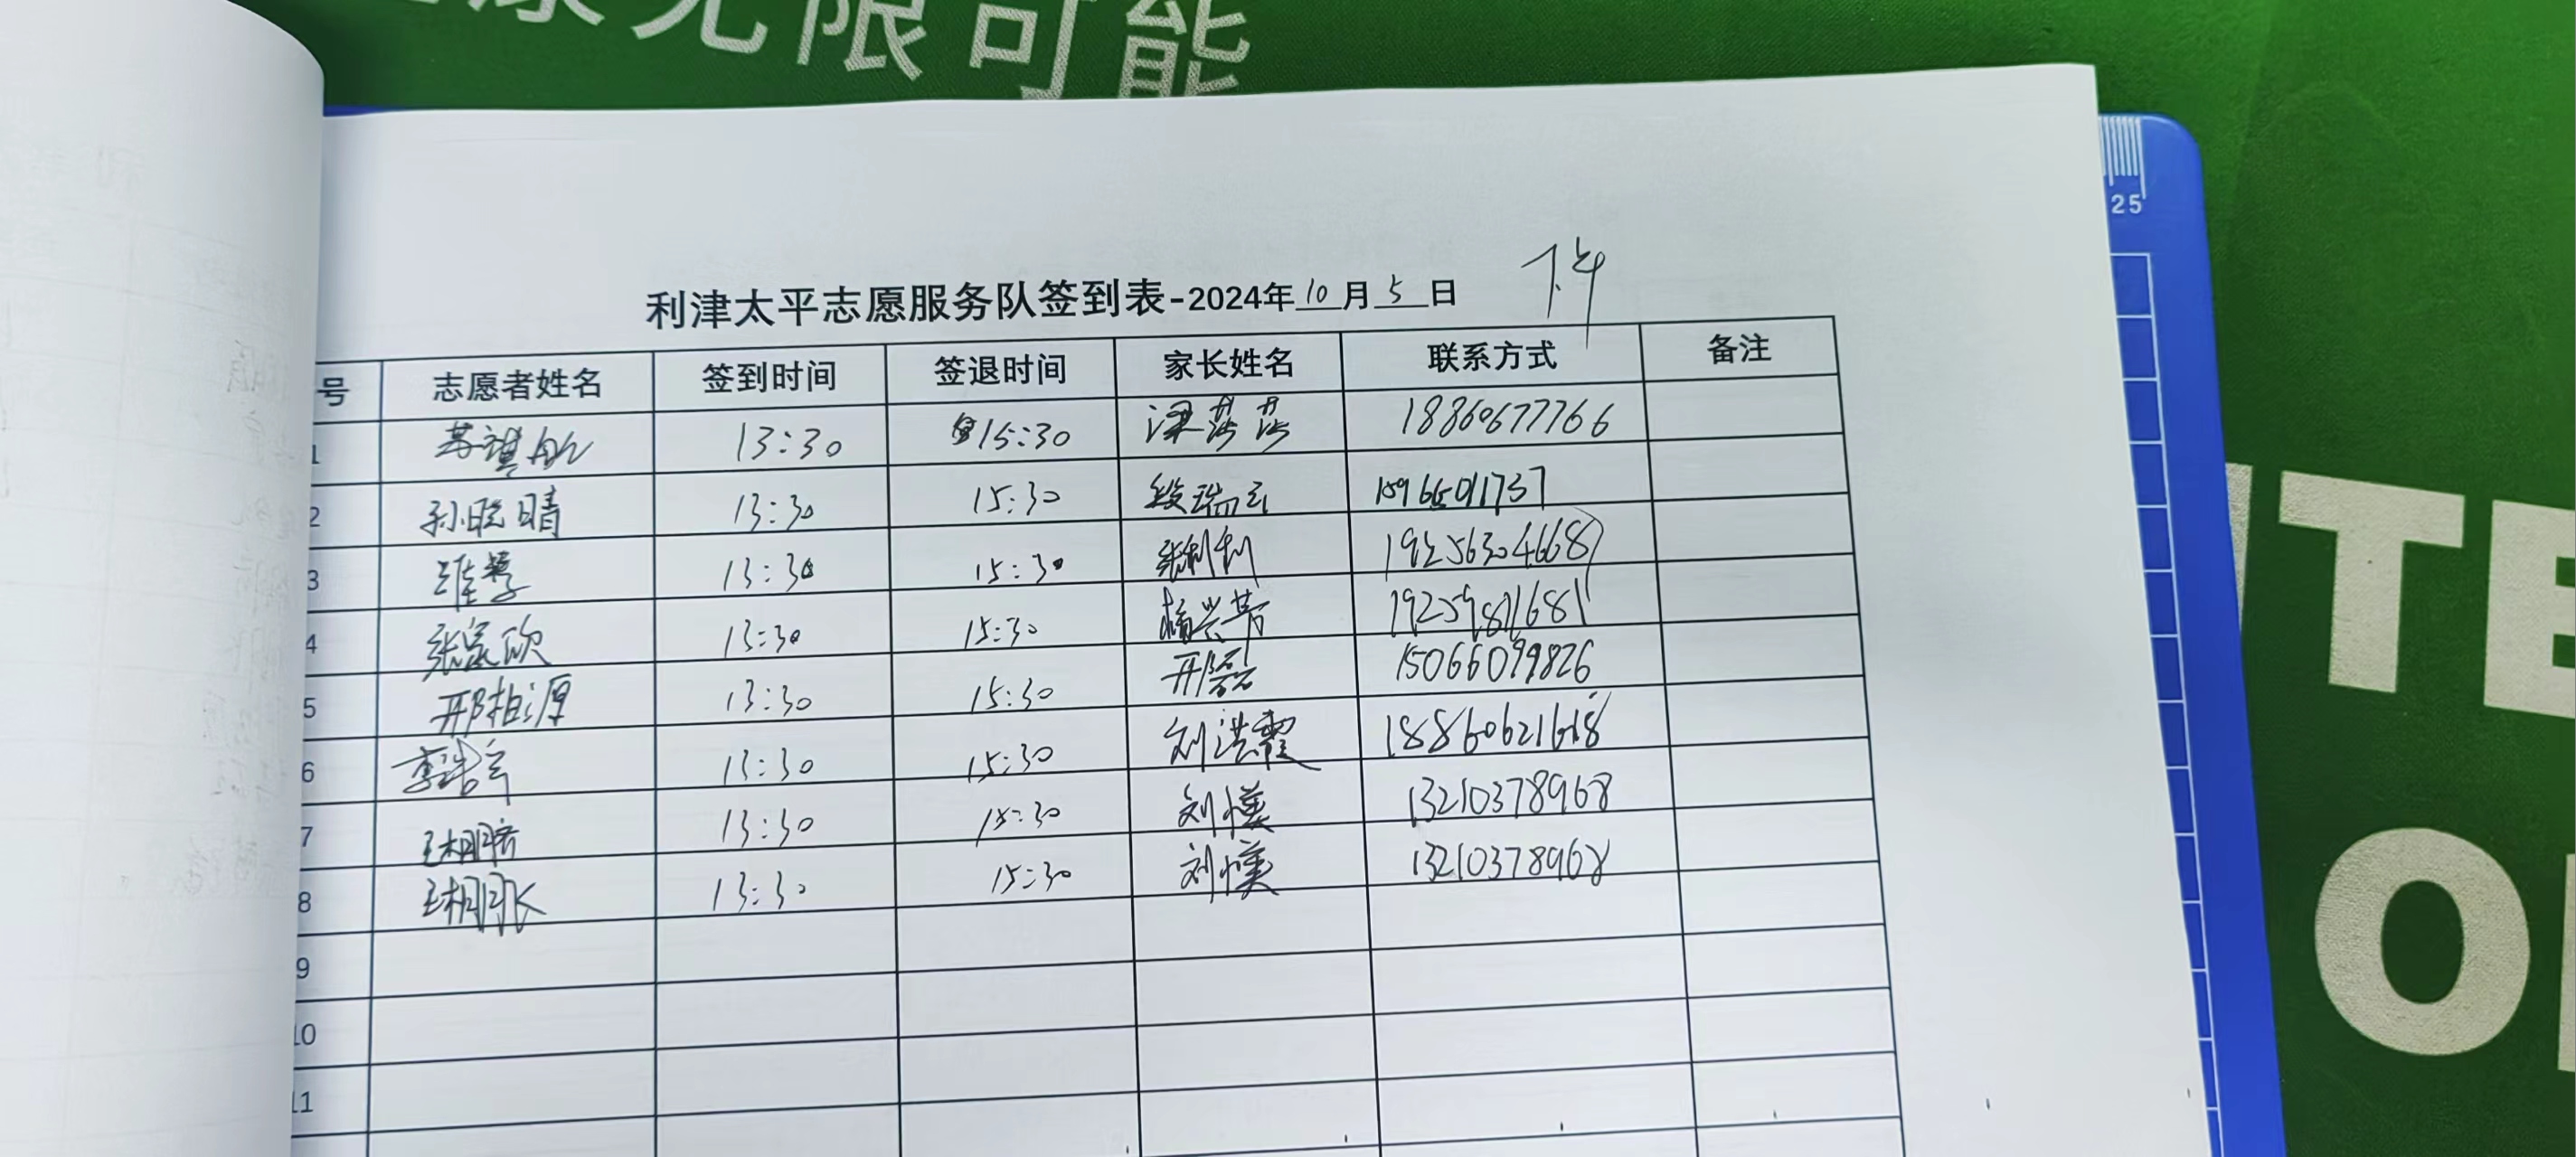 康无限可能
25
利津太平志愿服务队签到表-2024年10月5日 下午
号 志愿者姓名 签到时间 签退时间 家长姓名 联系方式 备注
1 苏祺 13:30 15:30 梁莎莎 18860677766
2 孙聪晴 13:30 15:30 段瑞云 15966011737
3 13:30 15:30 张利利 19256304668
4 张家欣 13:30 15:30 杨兴芳 19259811681
5 邢柏源 13:30 15:30 邢磊 15066099826
6 李浩宇 13:30 15:30 刘洪霞 18860621618
7 13:30 15:30 刘 13210378968
8 13:30 15:30 刘 13210378968
9
10
11
TE
O